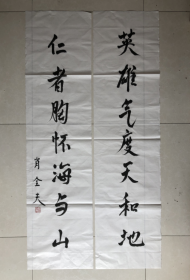 英雄气度天和地
仁者胸怀海与山
肖金夫